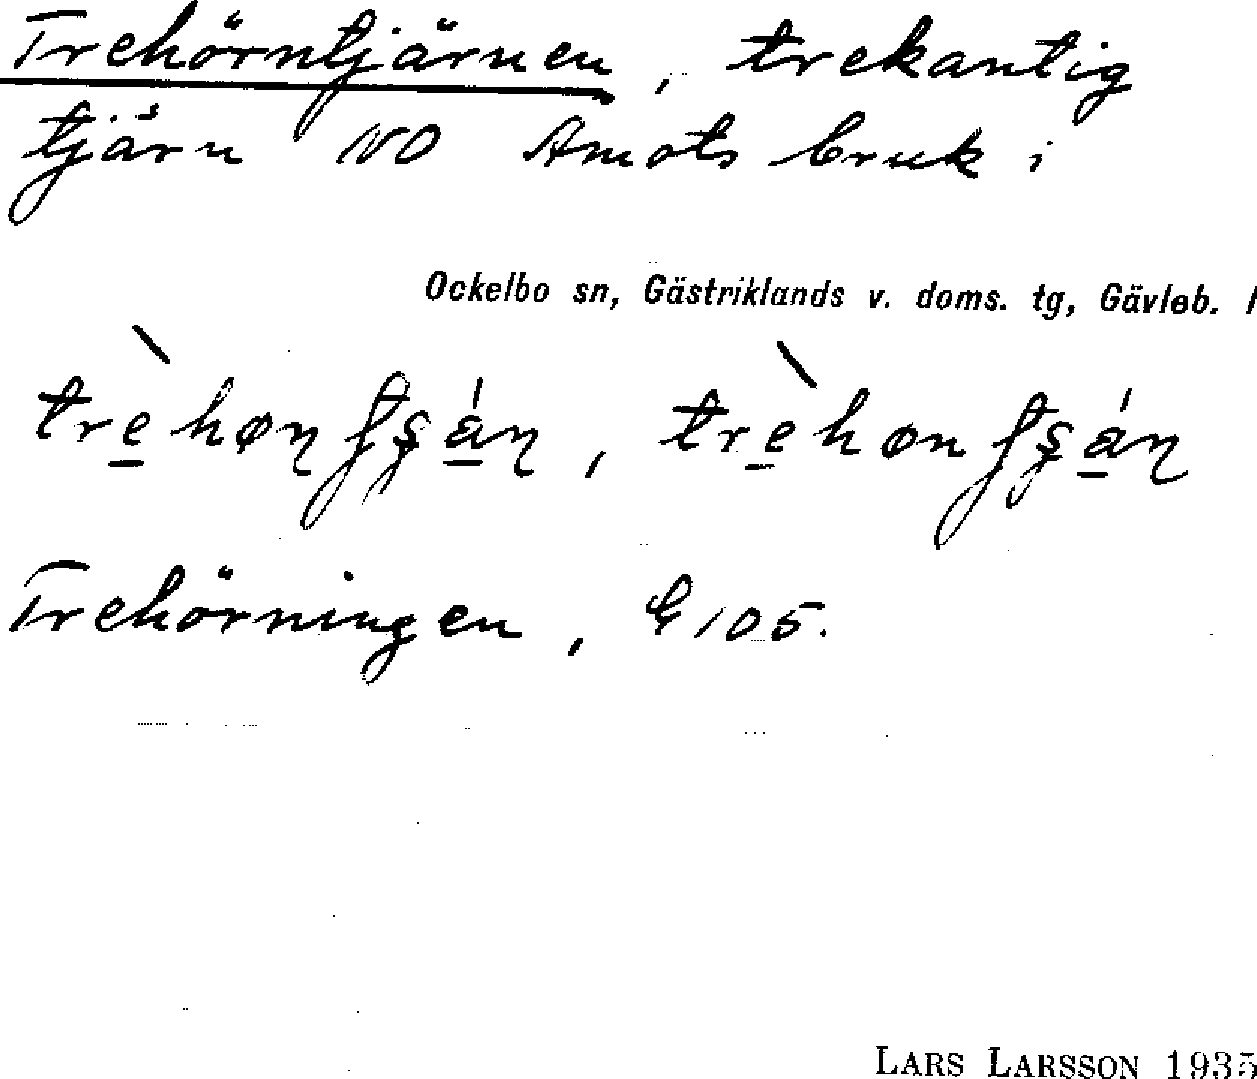 Trehörntjärnen, trekantig
tjärn NO Åmots bruk i
Ockelbo sn, Gästriklands v. doms. tg, Gävleb. l
Trehörningen, E 105.
LARS LARSSON 1935